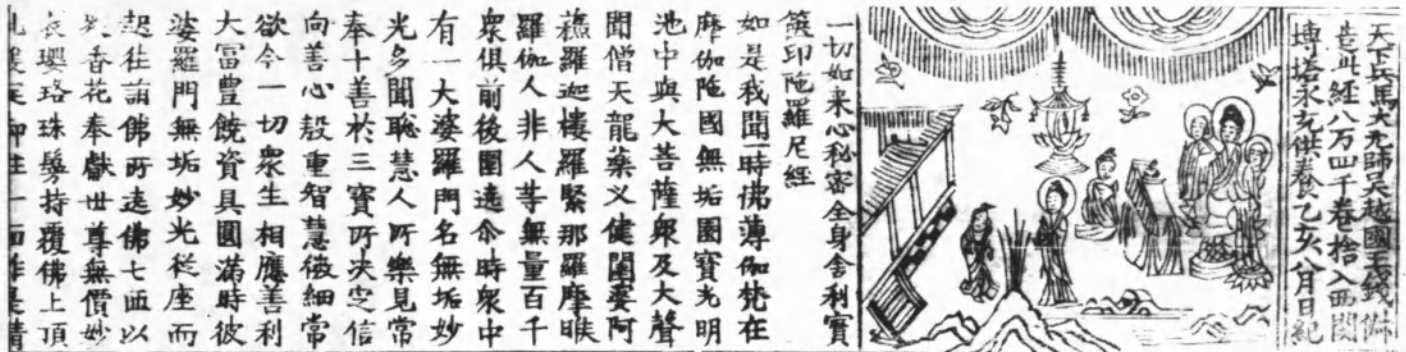 天下兵馬大元帥吳越國王錢俶
造此經八万四千卷捨入西関
塼塔永充供養乙亥八月日紀
一切如来心秘密全身舍利寳
篋印陁羅尼經
如是我聞一時佛薄伽梵在
摩伽陁國無垢園寳光明
池中與大菩薩衆及大聲
聞僧天龍藥叉健闥婆阿
蘓羅迦樓羅緊那羅摩睺
羅伽人非人等無量百千
衆俱前後圍遶尒時衆中
有一大婆羅門名無垢妙
光多聞聡慧人所樂見常
奉十善於三寳所决定信
向善心殷重智慧微細常
欲令一切衆生相應善利
大富豊饒資具圓滿時彼
婆羅門無垢妙光從座而
起往詣佛所遶佛七匝以
衆香花奉獻世尊無價妙
衣瓔珞珠鬘持覆佛上頂
礼雙足却住一面作是請